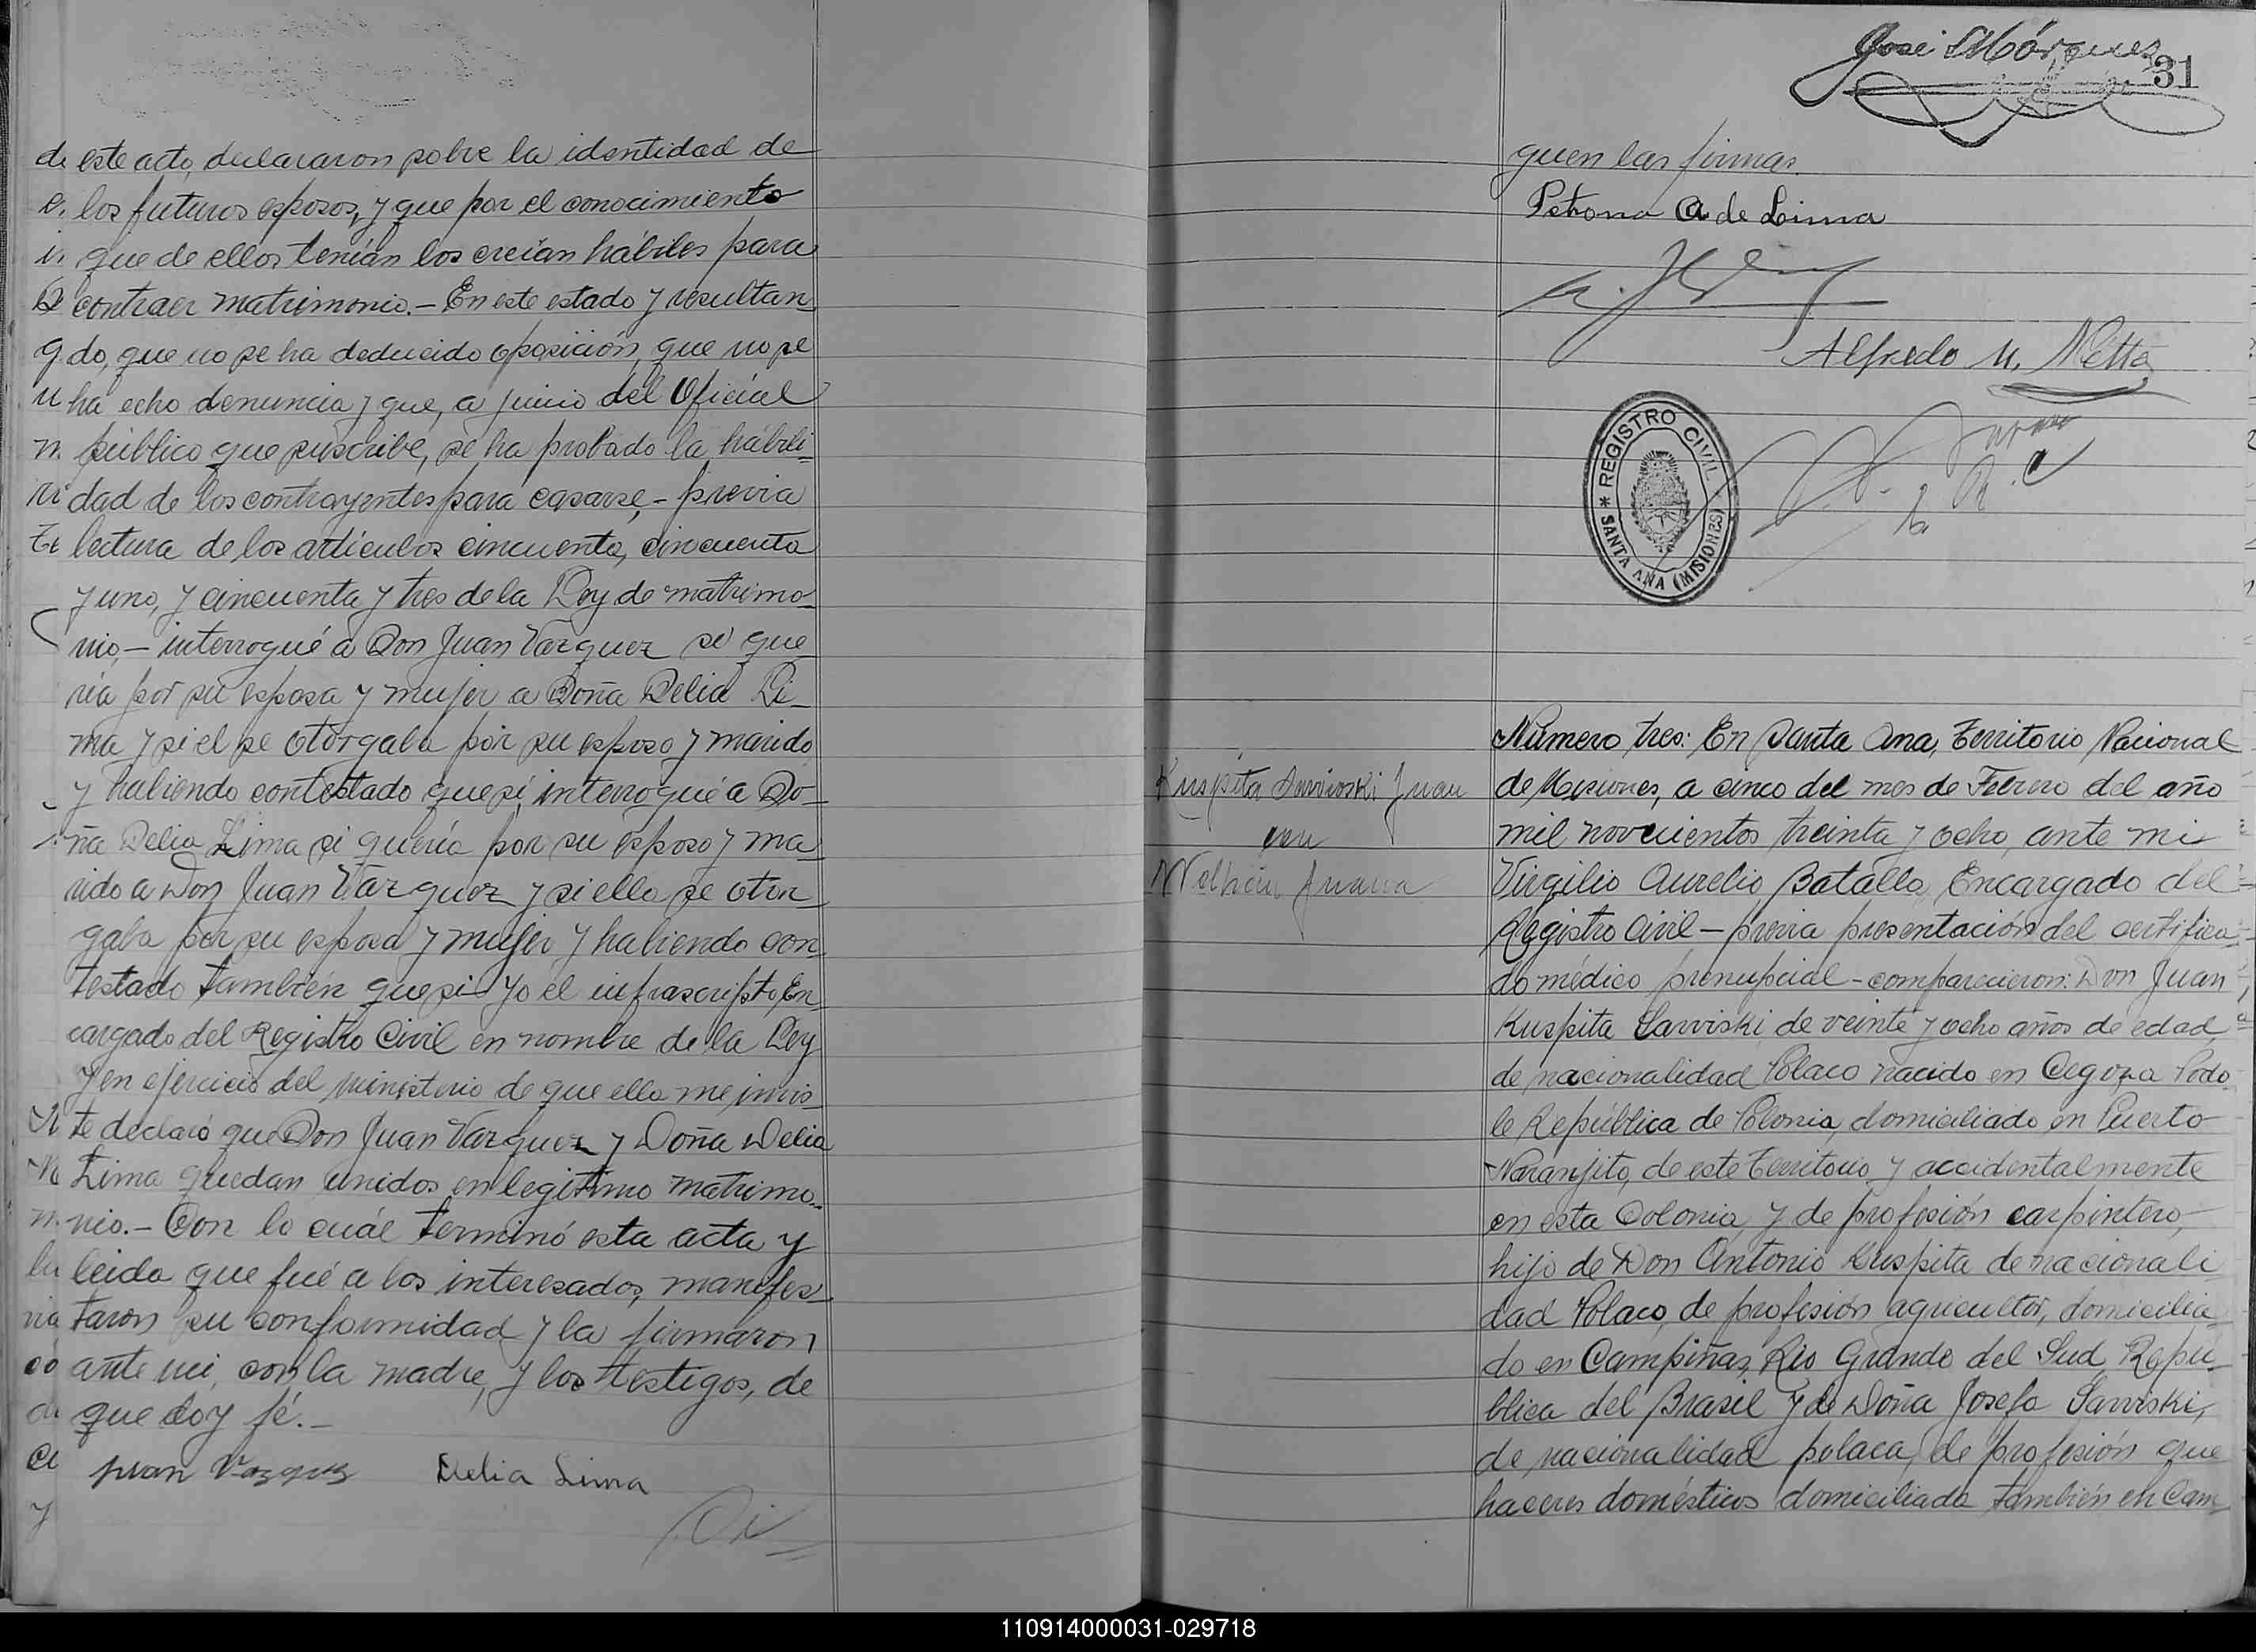 de este acto, declararon sobre la identidad de
los futuros esposos, y que por el conocimiento
que de ellos tenían los creían hábiles para
contraer matrimonio.- En este estado y resultan
do, que no se ha deducido oposición, que no se
ha echo denuncia y que, a juicio del Oficial
público que suscribe, se ha probado la habili-
dad de los contrayentes para casarse,- previa
lectura de los artículos cincuenta, cincuenta
y uno, y cincuenta y tres de la Ley de matrimo-
nio,- interrogué a Don Juan Vazquez si que
ría por su esposa y mujer a Doña Delia Li-
ma y si el se otorgaba por su esposo y marido
y habiendo contestado que sí, interrogué a Do-
ña Delia Lima si quería por su esposo y ma-
rido a Don Juan Vazquez y si ella se otor-
gaba por su esposa y mujer y habiendo con-
testado también que si- Yo el infrascripto, En-
cargado del Registro Civil en nombre de la Ley
y en ejercicio del ministerio de que ella me invis-
te declaró que Don Juan Vazquez y Doña Delia
Lima quedan unidos en legítimo matrimo-
nio.- Con lo cuál terminó esta acta y
leida que fué a los interesados, manifes-
taron su conformidad y la firmaron
ante mi, con la madre, y los testigos, de
que doy fé.-
Juan Vazquez Delia Lima
José Márquez
31
guen las firmas.
Petrona A de Lima
Alfredo M. Netto
REGISTRO CIVIL
SANTA ANA (MISIONES)
Kuspita Sawioski Juan
con
Juana
Número tres: En Santa Ana, Territorio Nacional
de Misiones, a cinco del mes de Febrero del año
mil novecientos treinta y ocho, ante mi
Virgilio Aurelio Batalla, Encargado del
Registro Civil - previa presentación del certifica-
do médico prenupcial - comparecieron: Don Juan
Kuspita Sawiski, de veinte y ocho años de edad,
de nacionalidad Polaco nacido en Podo-
le República de Polonia, domiciliado en Puerto
Naranjito, de este Territorio y accidentalmente
en esta Colonia, y de profesión carpintero,
hijo de Don Antonio Kuspita de nacionali
dad Polaco, de profesión agricultor, domicilia-
do en Campiñas, Rio Grande del Sud, Repu-
blica del Brasil y de Doña Josefa Sawiski,
de nacionalidad polaca, de profesión que
haceres domésticos domiciliada también en Cam
110914000031-029718